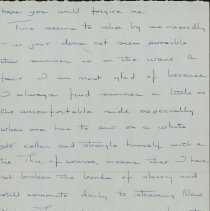 hope you will forgive me
Time seems to slip by so rapidly
- it just does not seem possible
that summer is on the wane. A
fear I am most glad of because
I always find summer a little on
the uncomfortable side especially
when one has to put on a white
collar and strangle himself with a
tie. This, of course, means that I have
not broken the bonds of slavery and
still commute daily to steaming New